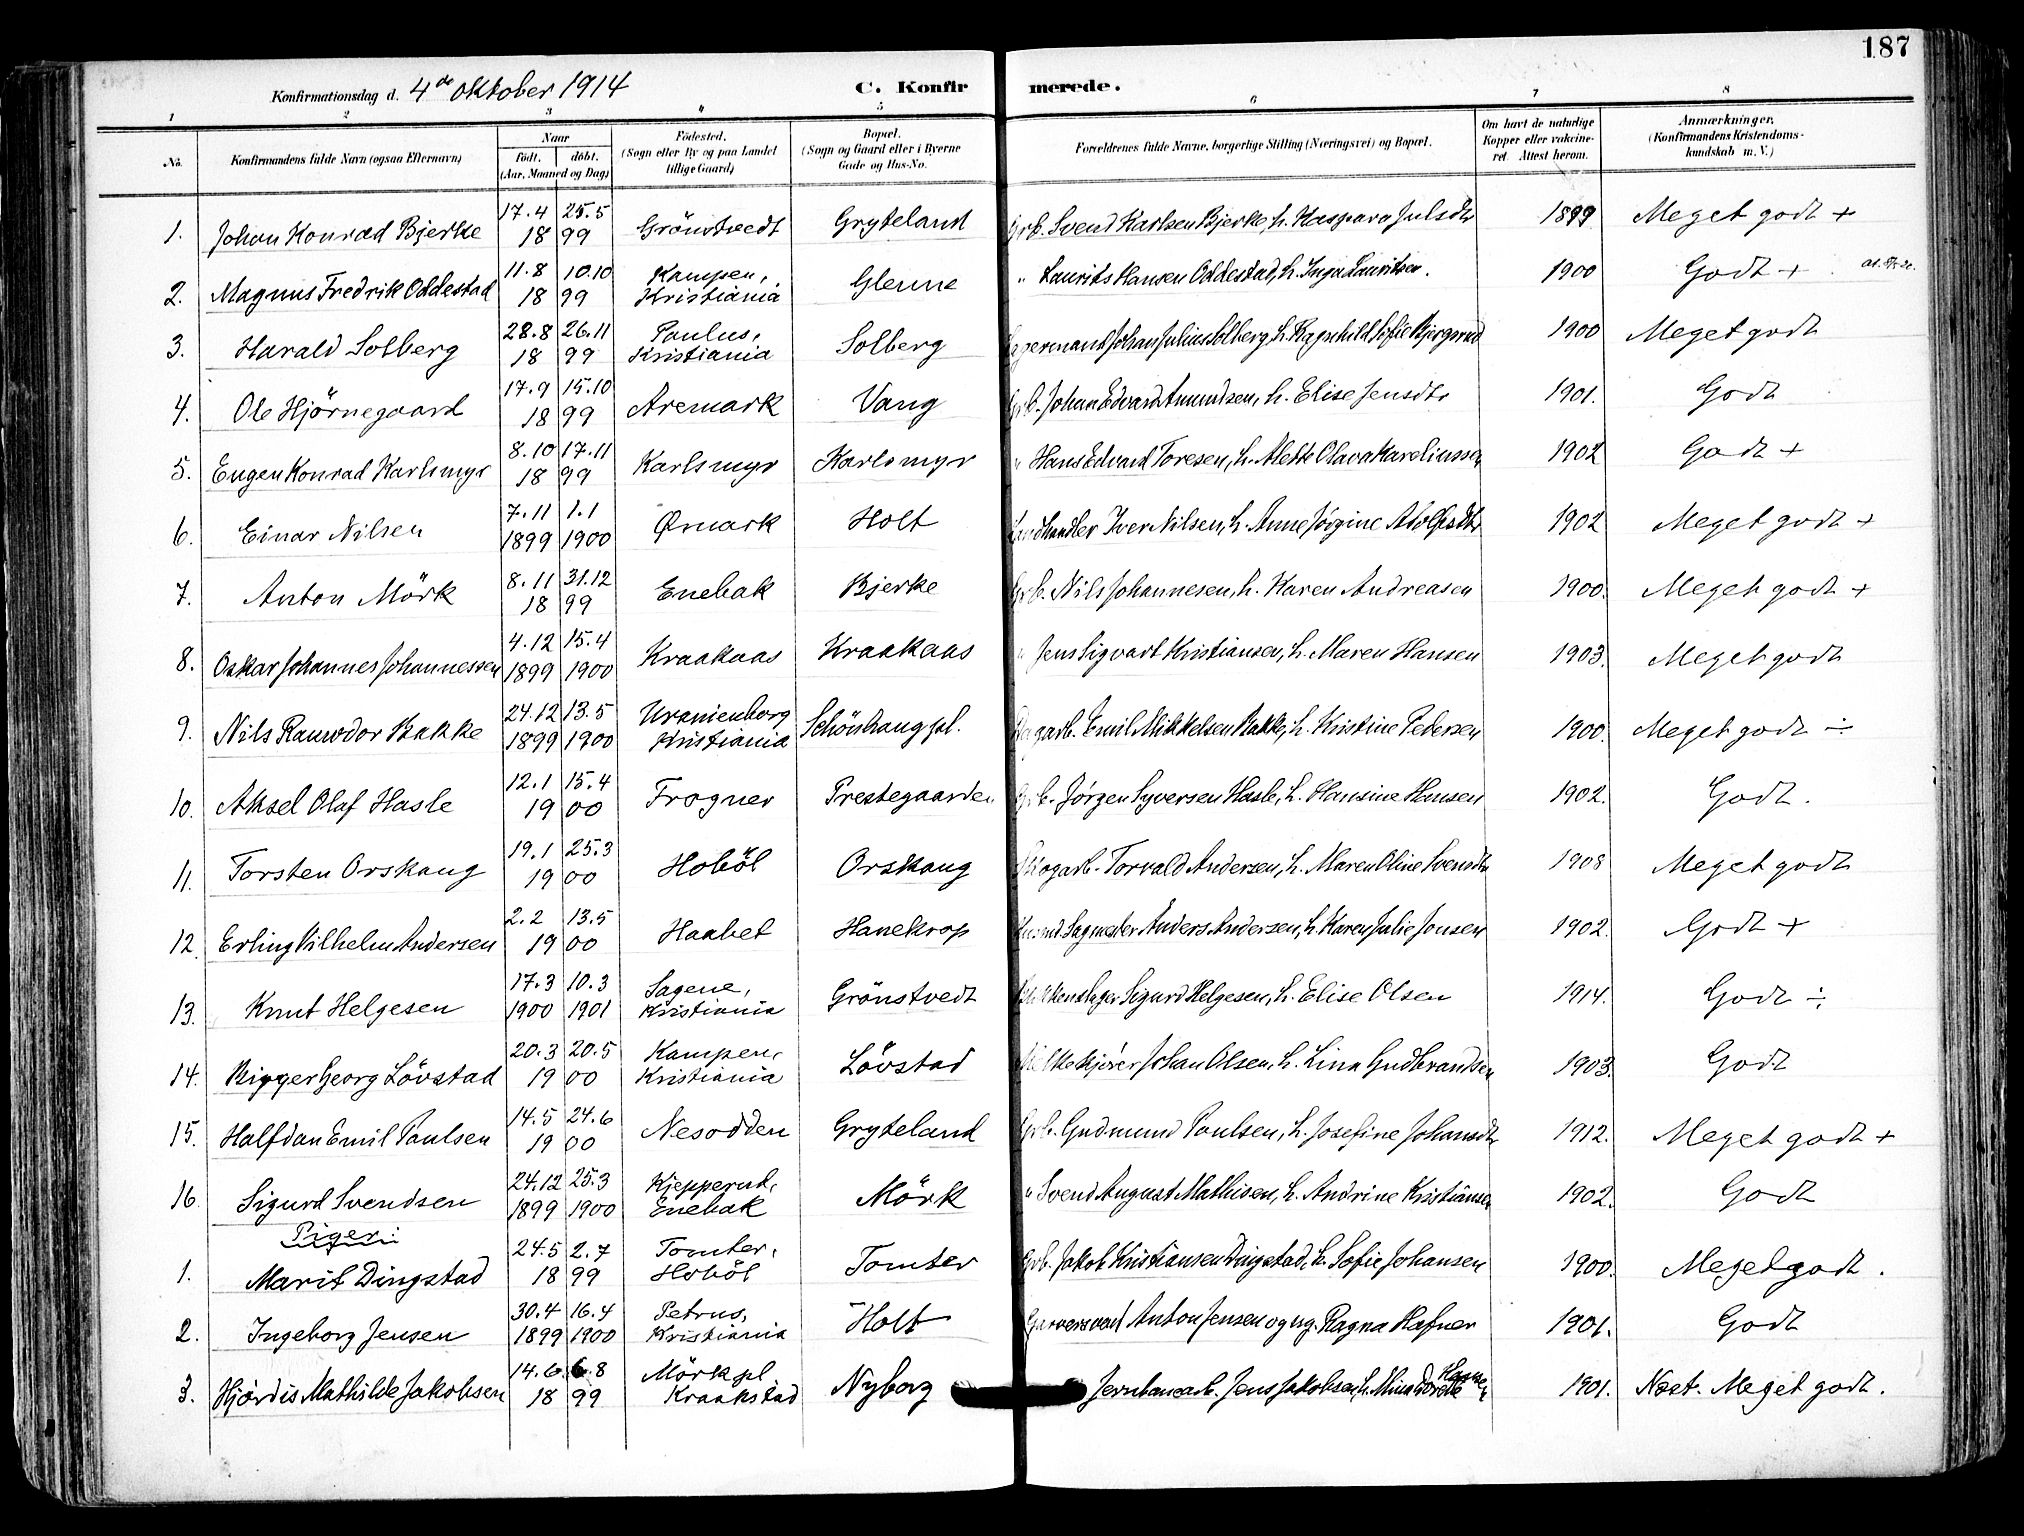 187
Konfirmationsdag d. 4de Oktober 1914 C. Konfirmerede.
1 2 3 4 5 6 7 8
No. Konfirmandens fulde Navn (ogsaa Efternavn) Naar født. døbt. (Aar, Maaned og Dag) Fødested. (Sogn eller By og paa Landet tillige Gaard) Bopæl. (Sogn og Gaard eller i Byerne Gade og Hus-No. Forældrenes fulde Navne, borgerlige Stilling (Næringsvei) og Bopæl. Om havt de naturlige Kopper eller vakcineret. Attest herom. Anmærkninger. (Konfirmandens Kristendomskundskab m. V.)
1. Johan Konrad Bjerke 17.4 1899 25.5 Grönstvedt Gryteland Grb. Svend Karlsen Bjerke, h. Kaspara Julsdtr 1899 Meget godt +
2. Magnus Fredrik Oddestad 11.8 1899 10.10 Kampen, Kristiania Glenne " Laurits Hansen Oddestad, h. Inga Lauritsen. 1900 Godt +
3. Harald Solberg 28.8 1899 26.11 Paulus, Kristiania Solberg Lagermand Johan Julius Solberg, h. Ragnhild Sofie Bjergerud 1900 Meget godt
4. Ole Hjörnegaard 17.9 1899 15.10 Aremark Vang Grb. Johan Edvard Amundsen, h. Elise Jensdtr 1901. Godt
5. Eugen Konrad Karlsmyr 8.10 1899 17.11 Karlsmyr Karlsmyr " Hans Edvard Toresen, h. Alette Olava Kareliussen 1902 Godt +
6. Einar Nilsen 7.11 1899 1.1 1900 Ømark Holt Landhandler Iver Nilsen, h. Anne Jørgine Adolfsdtr 1902 Meget godt +
7. Anton Mörk 8.11 1899 31.12 Enebak Bjerke Grb. Nils Johannesen, h. Karen Andreasen 1900. Meget godt +
8. Oskar Johannes Johannessen 4.12 1899 15.4 1900 Kraakaas Kraakaas " Jens Sigvart Kristiansen, h. Maren Hansen 1903. Meget godt
9. Nils Ranvdor Bakke 24.12 1899 13.5 1900 Uranienborg Kristiania Schönhaug pl. Dagarb. Emil Mikkelsen Bakke, h. Kristine Pedersen 1900. Meget godt ÷
10. Aksel Olaf Hasle 12.1 1900 15.4 Frogner Prestegaarden Grb. Jørgen Syversen Hasle, h. Hansine Hansen 1902. Godt.
11. Torsten Orskaug 19.1 1900 25.3 Hoböl Orskaug Skogarb. Torvald Andersen, h. Maren Oline Svensdtr 1908 Meget godt
12. Erling Vilhelm Andersen 2.2 1900 13.5 Haabet Hanekrop Husmd. Sagmester Anders Andersen, h. Karen Julie Jonsen 1902. Godt +
13. Knut Helgesen 17.3 1900 10.3 1901 Sagene, Kristiania Grönstvedt Blikkenslager Sigurd Helgesen, h. Elise Olsen 1914. Godt ÷
14. Birger Georg Lövstad 20.3 1900 20.5 Kampen, Kristiania Lövstad Melkekjører Johan Olsen, h. Lina Gudbrandsen 1903. Godt
15. Halfdan Emil Paulsen 14.5 1900 24.6 Nesodden Gryteland Grb. Gudmund Paulsen, h. Josefine Johansdtr 1912. Meget godt +
16. Sigurd Svendsen 24.12 1899 25.3 1900 Kjepperud, Enebak Mörk " Svend August Mathisen, h. Andrine Kristiansen 1902. Godt
Piger:
1. Marit Dingstad 24.5 1899 2.7 Tomter, Hoböl Tomter Grb. Jakob Kristiansen Dingstad, h. Sofie Johansen 1900. Meget godt.
2. Ingeborg Jensen 30.4 1899 16.4 1900 Petrus, Kristiania Holt Garversvend Anton Jensen og ug. Ragna Hafner 1901. Godt
3. Hjördis Mathilde Jakobsen 14.6 1899 6.8 Mörk pl Kraakstad Nyborg Jernbanearb. Jens Jakobsen, h. Mina Dorete Hansen 1901. Næst. Meget godt.